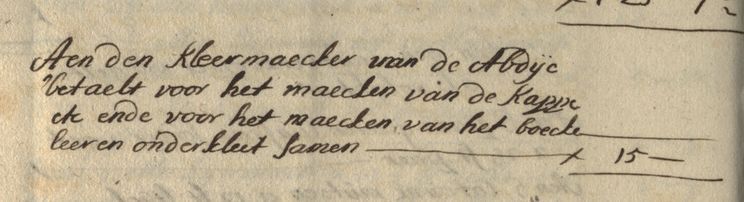 Aen den Kleermaecker van de Abdÿe
betaelt voor het maecken van de Kappe
etc ende voor het maecken van het boecke
leeren onderkleet samen — x 15 —